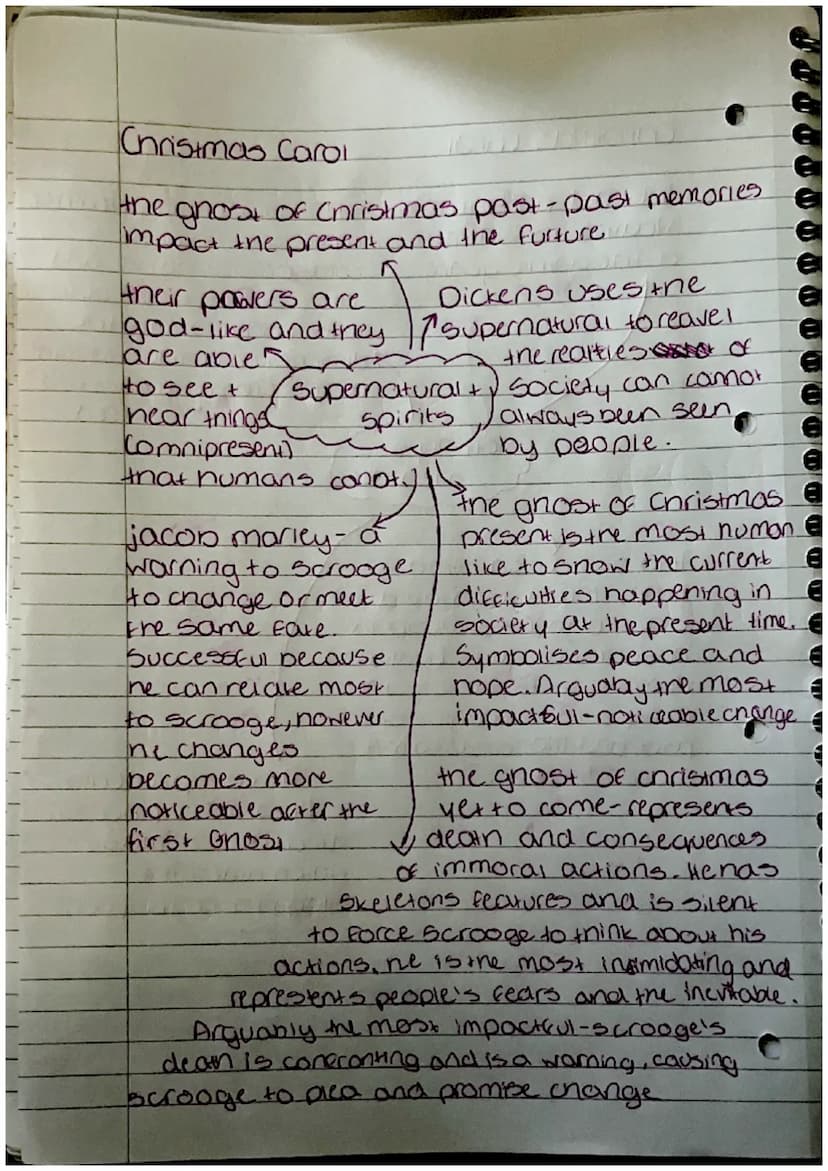 Christmas Carol
the ghost of Christmas past - past memories
impact the present and the furture
their powers are
god-like and they
are able
to see +
hear things
(omnipresent)
that humans canot
Supernatural +
spirits
Dickens uses the
supernatural to reavel
the realties of
society can cannot
always been seen
by people.
jacob marley - a
warning to scrooge
to change or meet
the same fate.
Successful because
he can relate most
to scrooge, however
he changes
becomes more
noticeable after the
first Ghost
the ghost of Christmas
present is the most human
like to show the current
difficulties happening in
society at the present time.
Symbolises peace and
hope. Arguably the most
impactful - noticeable change
the ghost of christmas
yet to come - represents
death and consequences
of immoral actions. He has
skeletons features and is silent
to force scrooge to think about his
actions. he is the most intimidating and
represents people's fears and the inevitable.
Arguably the most impactful - scrooge's
death is confronting and is a warning, causing
scrooge to plea and promise change